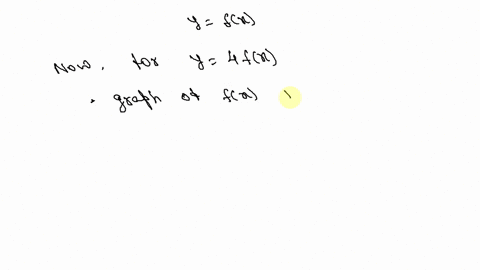 y = f(x)
Now, for y = 4f(x)
• graph of f(x)